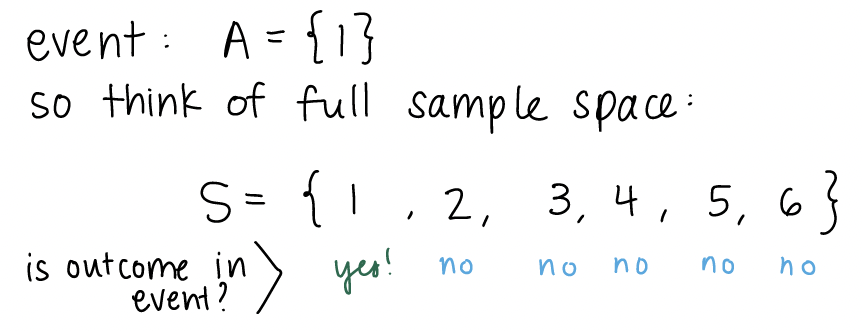 event: A = {1}
so think of full sample space:
S = { 1 , 2, 3, 4, 5, 6 }
is outcome in event? > yes! no no no no no